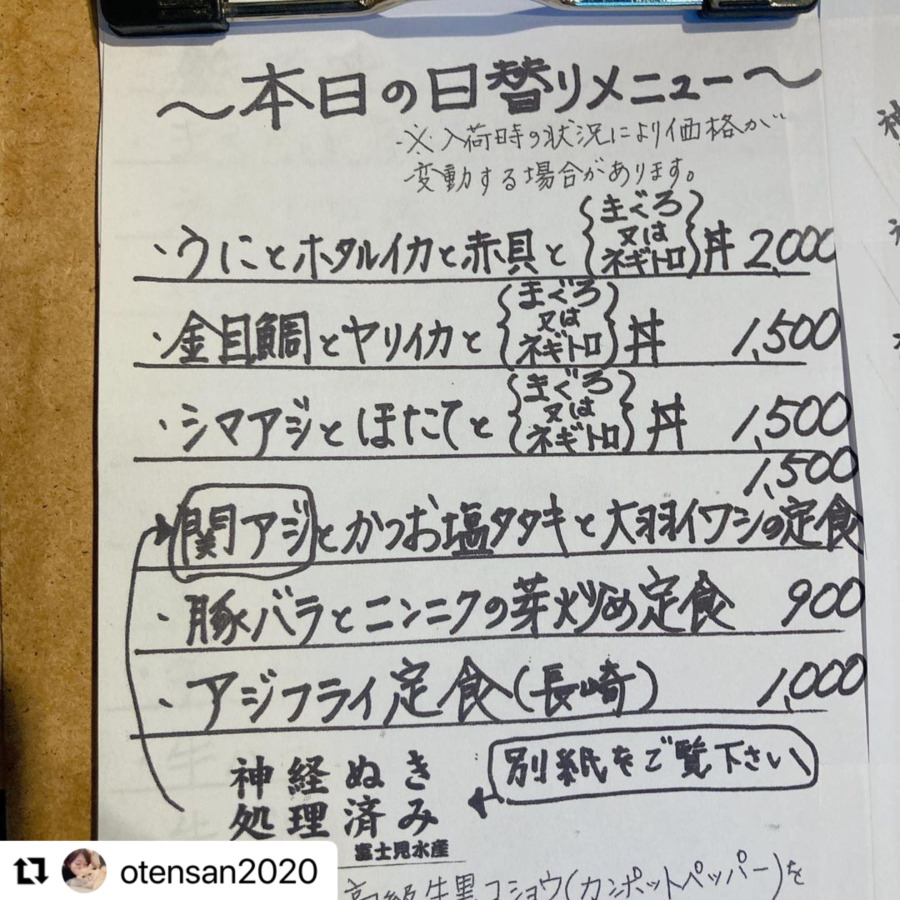 ～本日の日替りメニュー～
※入荷時の状況により価格が
変動する場合があります。
・うにとホタルイカと赤貝と{まぐろ又はネギトロ}丼 2,000
・金目鯛とヤリイカと{まぐろ又はネギトロ}丼 1,500
・シマアジとほたてと{まぐろ又はネギトロ}丼 1,500
1,500
関アジとかつお塩タタキと大羽イワシの定食
・豚バラとニンニクの芽炒め定食 900
・アジフライ定食(長崎) 1,000
別紙をご覧下さい
神経ぬき
処理済み
富士見水産
高級生黒コショウ(カンポットペッパー)を
otensan2020